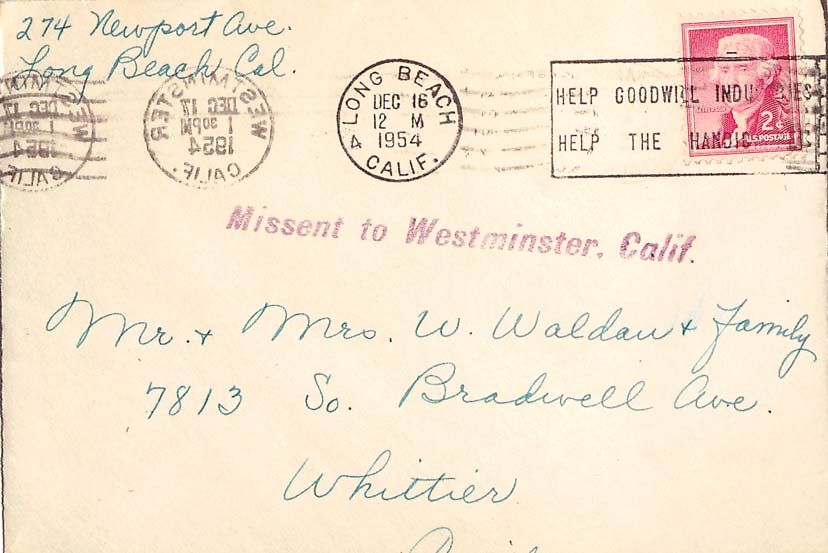 274 Newport Ave.
Long Beach, Cal.
WESTMINSTER
DEC 17
1 30PM
1954
CALIF.
WESTMINSTER
DEC 17
1 30PM
1954
CALIF.
LONG BEACH
DEC 16
12 M
1954
4 CALIF.
HELP GOODWILL INDUSTRIES
HELP THE
2¢
U.S. POSTAGE
Missent to Westminster, Calif.
Mr. + Mrs. W. Waldau + Family
7813 So. Bradwell Ave.
Whittier